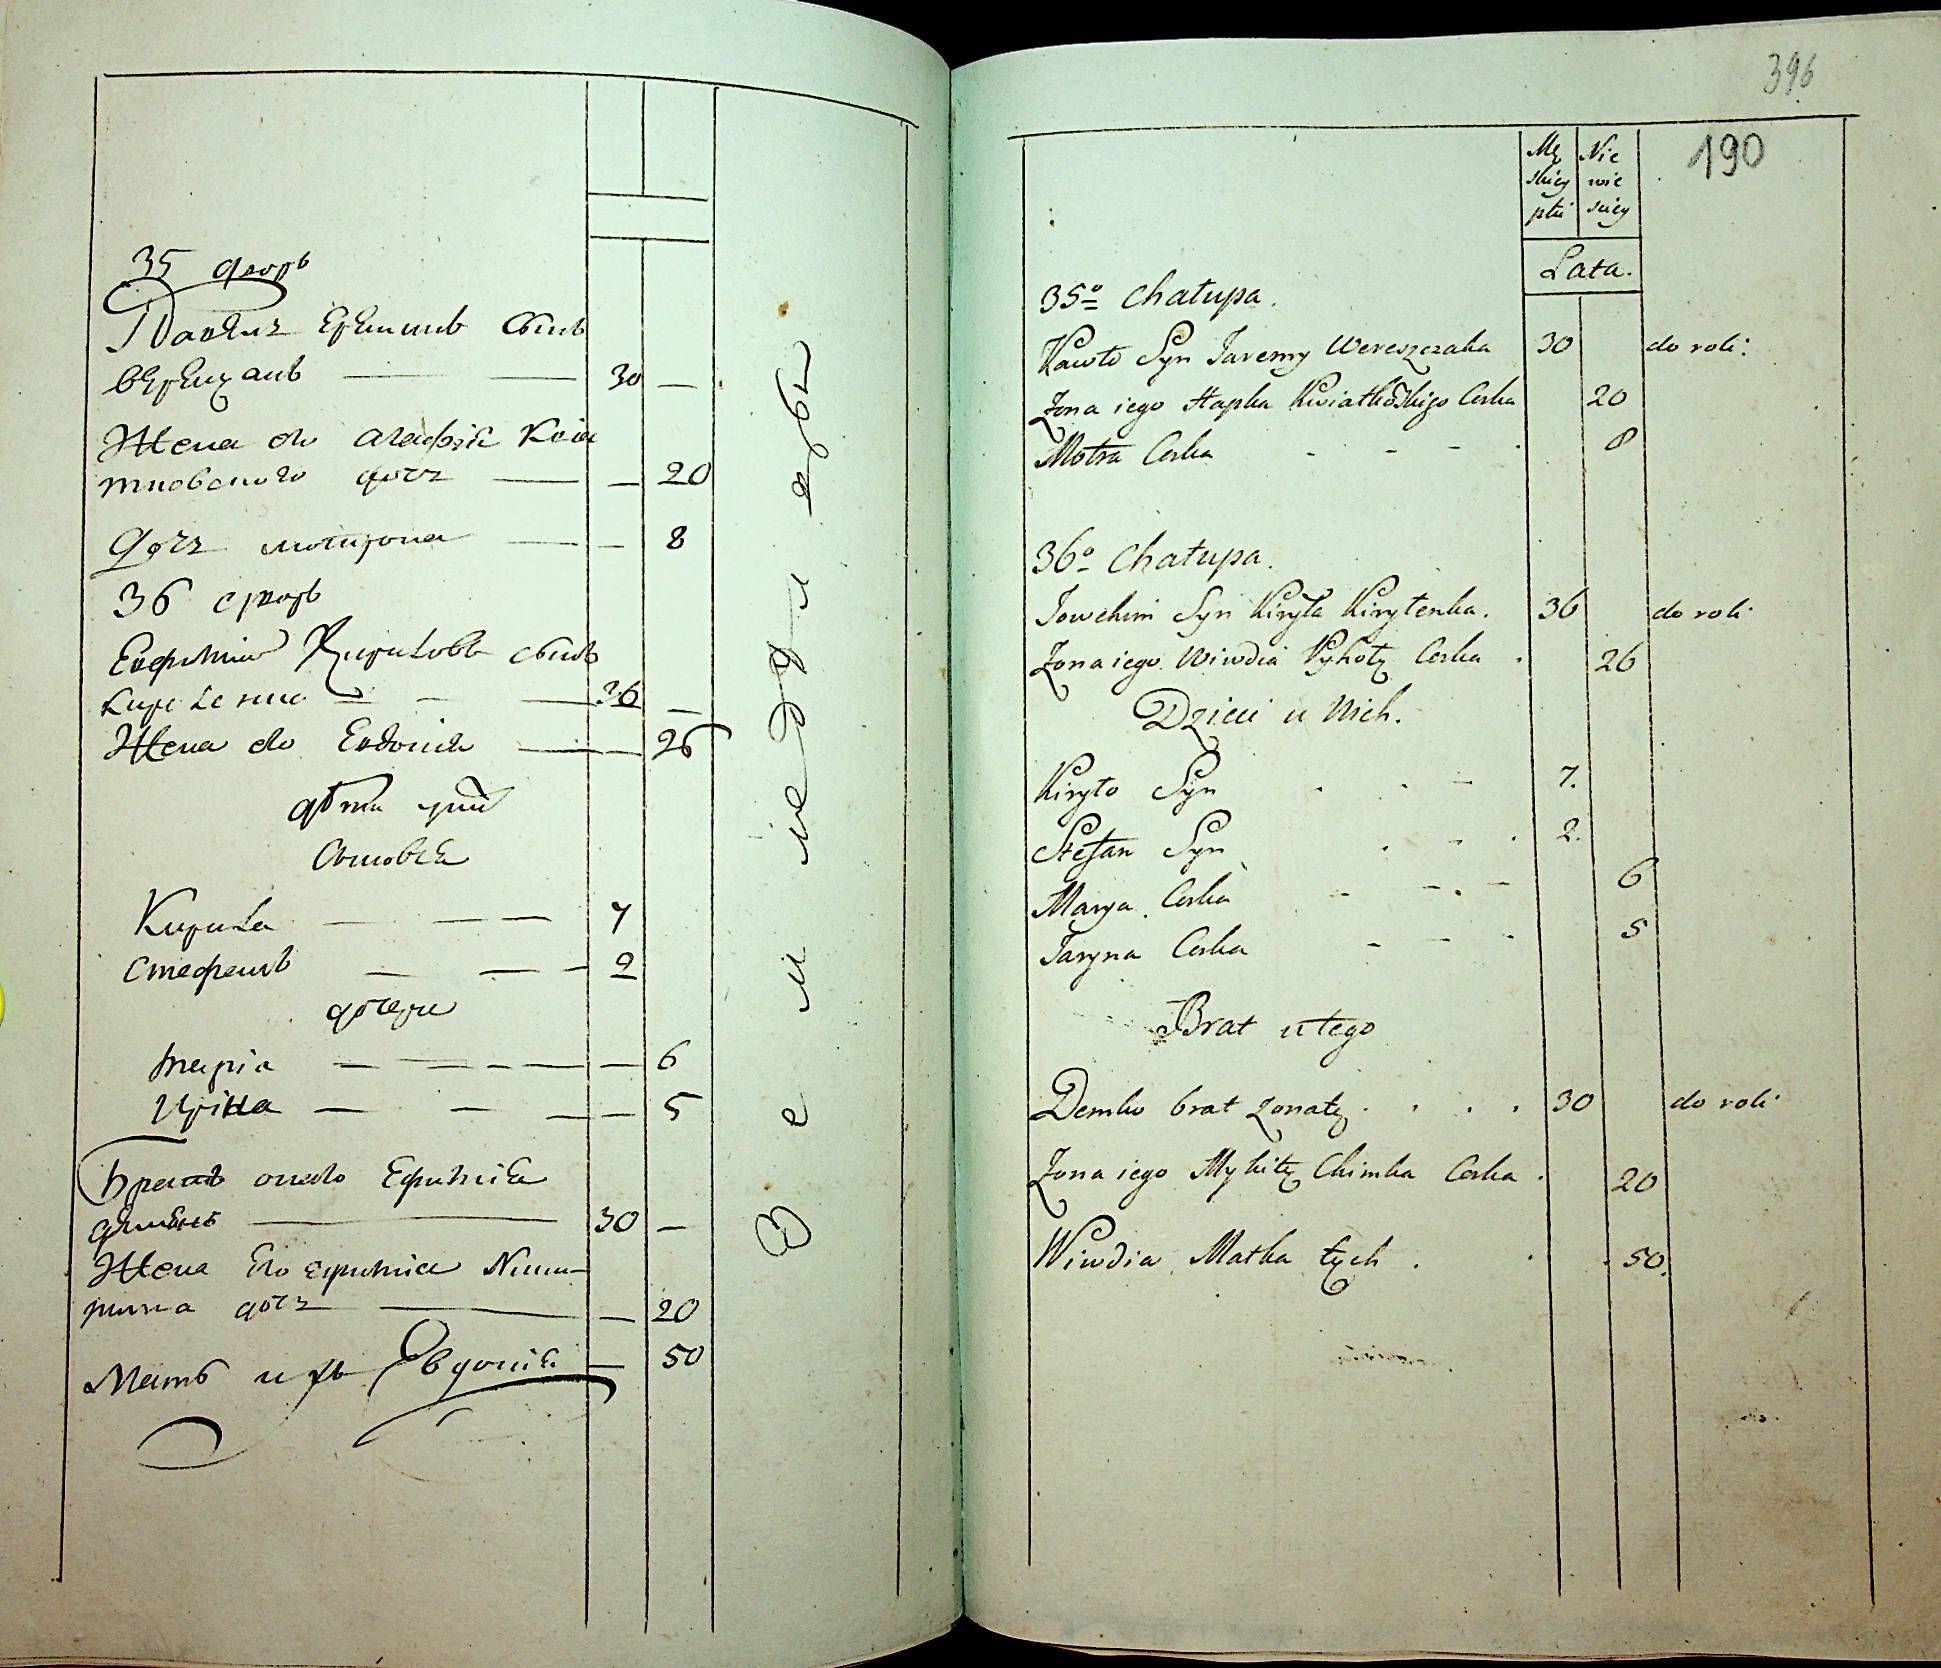 35 дворъ
Павелъ Еремиевъ сынъ
Верещакъ — — 30 —
Жена его Агафия Квя
тковского дочь — — 20
Дочь мотрона — — 8
36 дворъ
Евфимий Кириловъ сынъ
Кириленко — — 36 —
Жена его Евдокия — — 26
дѣти у них
Сыновья
Кирила — — — 7
Стефанъ — — — 2
дочери
Мария — — — — — 6
Ирина — — — — 5
Братъ онаго Ефимия
30 —
Жена Его Ефимия Ники
тина дочь — — 20
Мать ихъ Евдокия — 50
Земледѣлецъ
396
190
Mę
skiey
płci
Nie
wie
sciey
Lata.
35º Chałupa.
Pawło Syn Jaremy Wereszczaka 30 do roli.
Zona iego Hapka Kwiatkowskigo Corka 20
Motra Corka - - - 8
36º Chałupa.
Jowchim Syn Kiryła Kiryłenka. 36 do roli
Zona iego Wiwdia Corka . 26
Dzieci u Nich.
Kiryło Syn . . - 7.
Stefan Syn . - . 2.
Marya Corka - - . - 6
Jaryna Corka - - . 5
Brat u tego
Demko brat zonaty . . . . 30 do roli
Zona iego Mykity Chimka Corka . 20
Wiwdia Matka tych . . . 50.